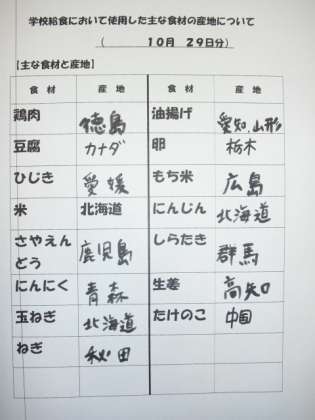 学校給食において使用した主な食材の産地について
(　10月　29日分)
【主な食材と産地】
食材 産地 食材 産地
鶏肉 徳島 油揚げ 愛知、山形
豆腐 カナダ 卵 栃木
ひじき 愛媛 もち米 広島
米 北海道 にんじん 北海道
さやえん
どう 鹿児島 しらたき 群馬
にんにく 青森 生姜 高知
玉ねぎ 北海道 たけのこ 中国
ねぎ 秋田